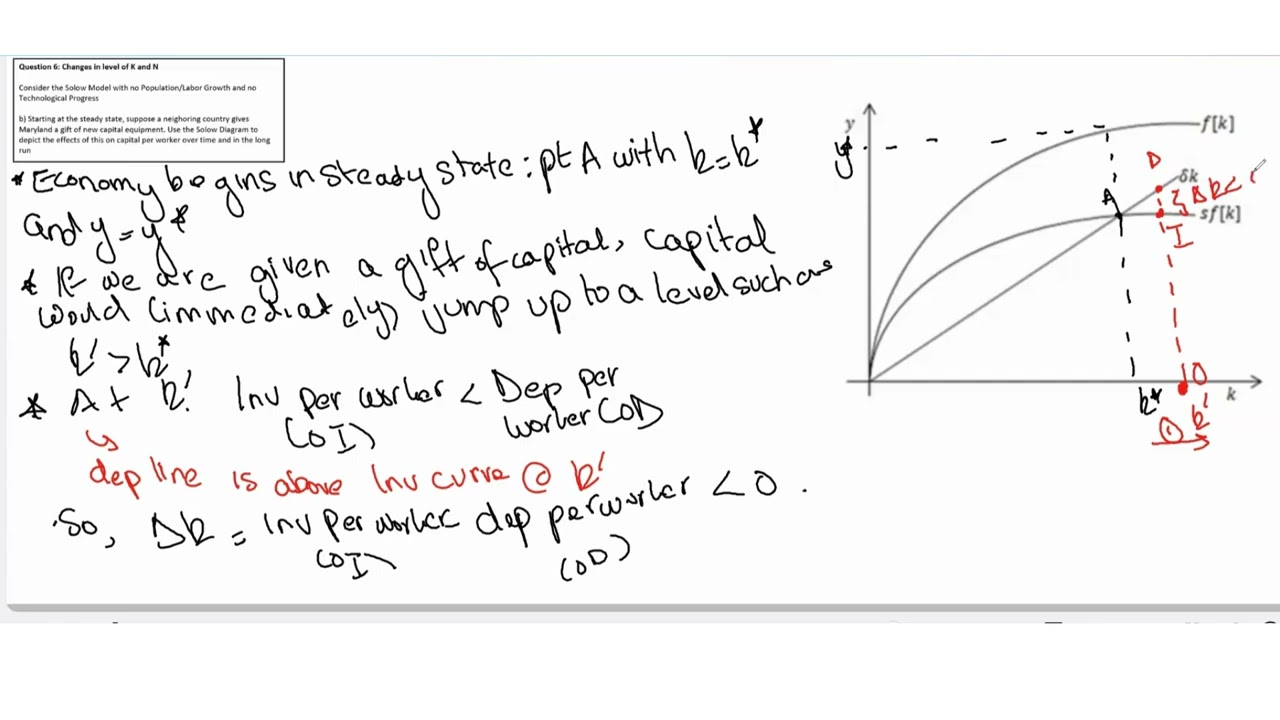 Question 6: Changes in level of K and N
Consider the Solow Model with no Population/Labor Growth and no
Technological Progress
b) Starting at the steady state, suppose a neighoring country gives
Maryland a gift of new capital equipment. Use the Solow Diagram to
depict the effects of this on capital per worker over time and in the long
run
* Economy begins in steady state: pt A with k=k*
and y=y*
* If we are given a gift of capital, capital
would (immediately) jump up to a level such as
k' > k*,
* At k'. Inv per worker < Dep per
(OI) worker (OD)
↳
dep line is above Inv curve @ k'
So, Δk = Inv per worker dep per worker < 0 .
(OI) (OD)
y
f[k]
y*
D
δk
A
} Δk <
sf[k]
I
O
k*
k'
k
①